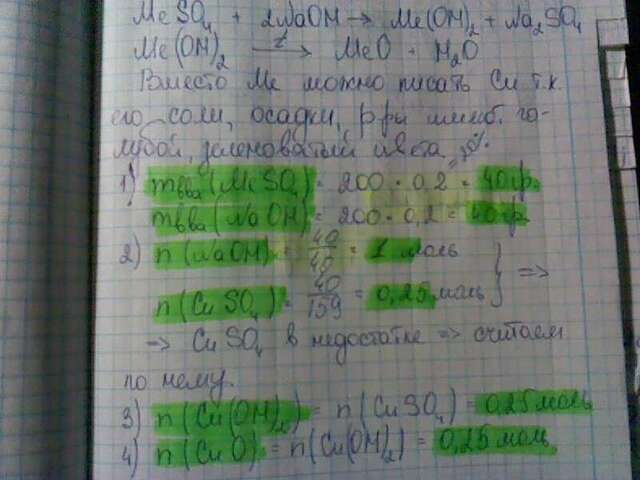 MeSO₄ + 2NaOH → Me(OH)₂ + Na₂SO₄
Me(OH)₂ →t MeO + H₂O
Вместо Me можно писать Cu т.к.
его соли, осадки, р-ры имеют го-
лубой, зеленоватый цвета. 20%
1) mв-ва(MeSO₄) = 200 · 0,2 = 40гр.
mв-ва(NaOH) = 200 · 0,2 = 40гр.
2) n(NaOH) = 40/40 = 1 моль
n(CuSO₄) = 40/159 = 0,25 моль } =>
→ CuSO₄ в недостатке => считаем
по нему.
3) n(Cu(OH)₂) = n(CuSO₄) = 0,25 моль
4) n(CuO) = n(Cu(OH)₂) = 0,25 моль